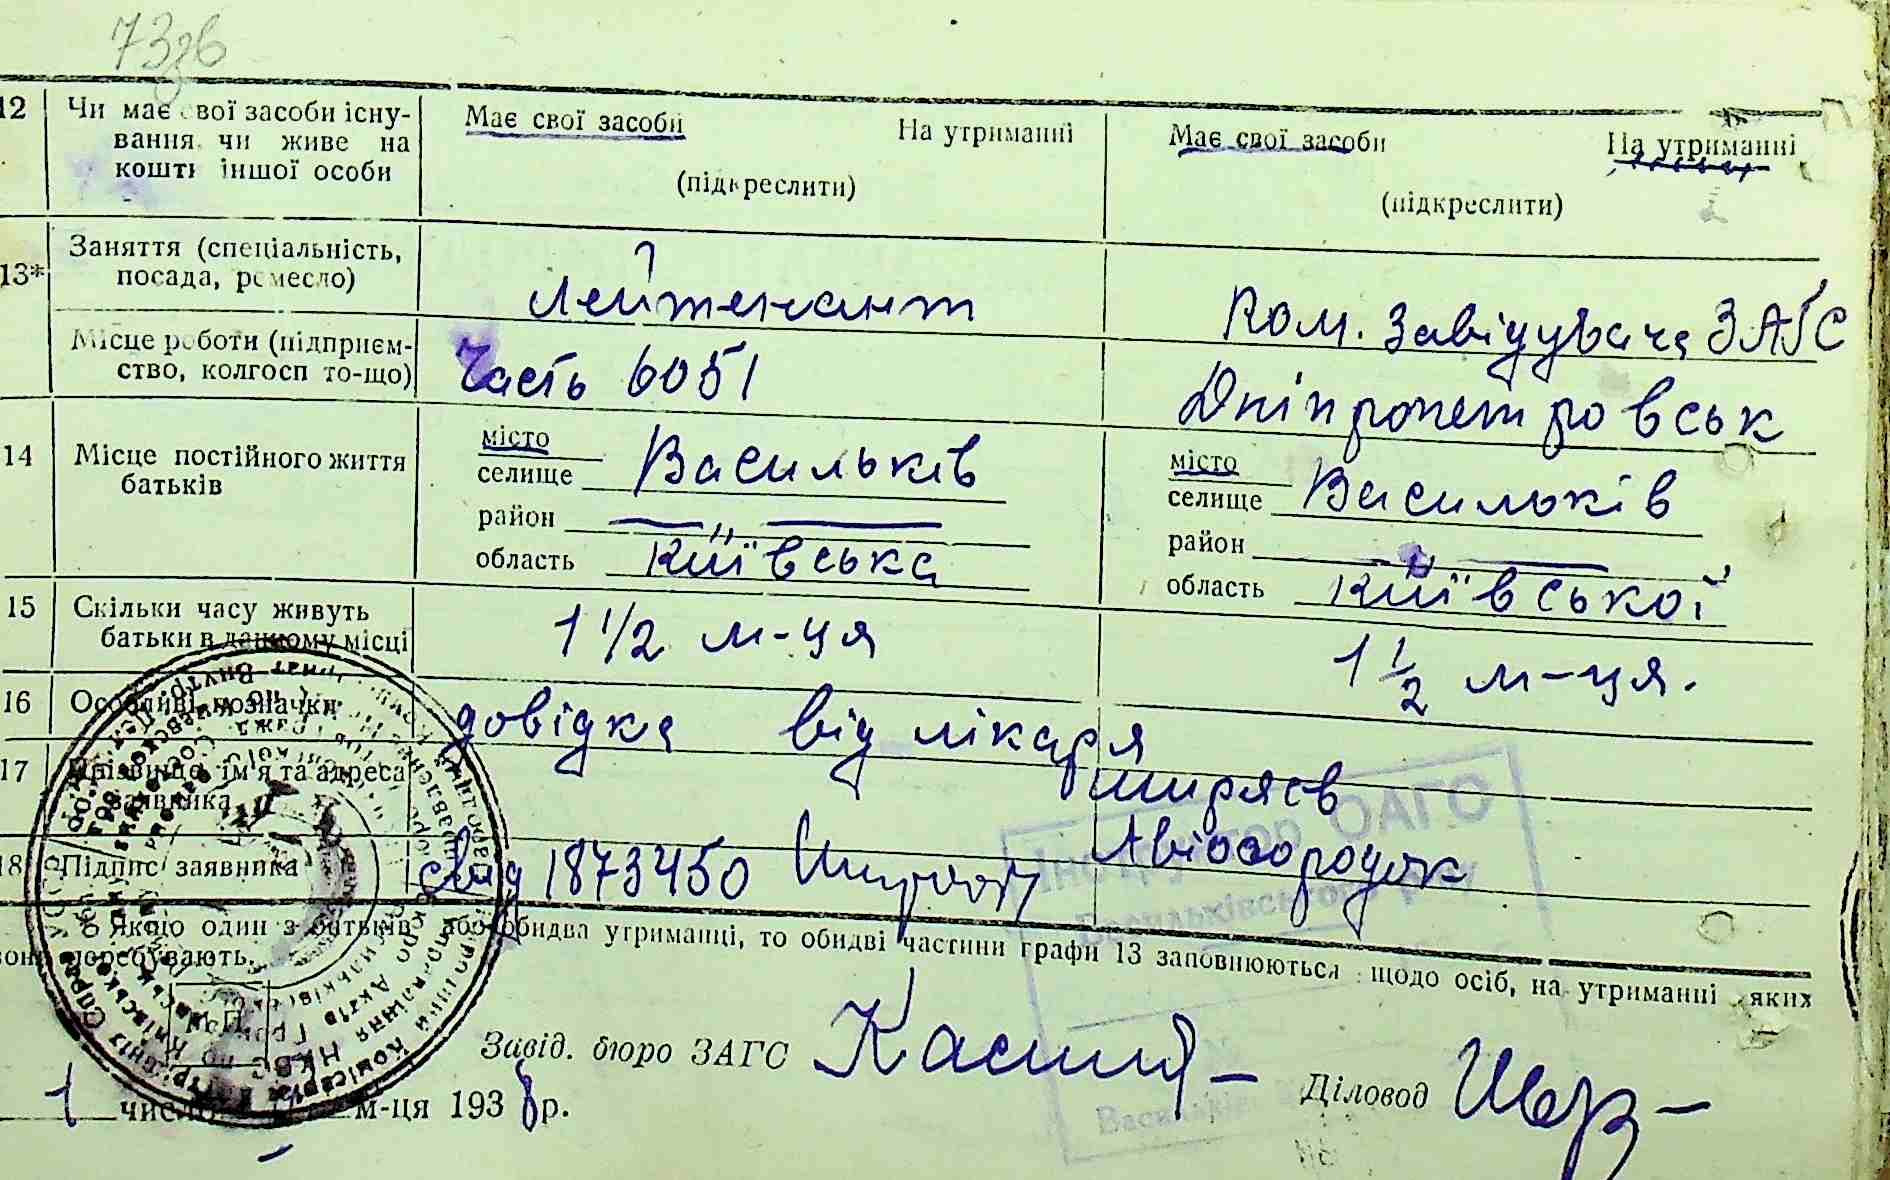 12 Чи має свої засоби існу-
вання чи живе на
кошти іншої особи
Має свої засоби На утриманні
(підкреслити)
Має свої засоби На утриманні
(підкреслити)
13* Заняття (спеціальність,
посада, ремесло)
Лейтенант
Пом. Завідувача ЗАГС
Місце роботи (підприєм-
ство, колгосп то-що)
Часть 6051
Дніпропетровськ
14 Місце постійного життя
батьків
місто
селище Васильків
район
область Київська
місто
селище Васильків
район
область Київської
15 Скільки часу живуть
батьки в данному місці
1 1/2 м-ця
1 1/2 м-ця.
16 Особливі позначки
довідка від лікаря
17 Прізвище, ім'я та адреса
заявника
Ширяєв
Авіогородок
18 Підпис заявника
1873450
Якщо один з батьків або обидва утриманці, то обидві частини графи 13 заповнюються щодо осіб, на утриманні яких
вони перебувають.
М.П.
Завід. бюро ЗАГС
Діловод
1 число м-ця 1938 р.
Інструктор ОАГС
Васильківського